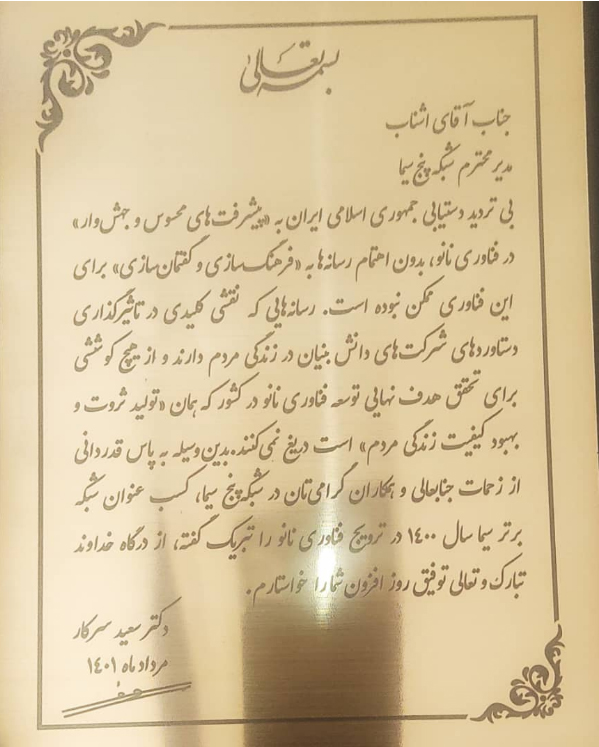 بسمه تعالی
جناب آقای اشناب
مدیر محترم شبکه پنج سیما
بی تردید دستیابی جمهوری اسلامی ایران به «پیشرفت‌های محسوس و جهش‌وار»
در فناوری نانو، بدون اهتمام رسانه‌ها به «فرهنگ‌سازی و گفتمان‌سازی» برای
این فناوری ممکن نبوده است. رسانه‌هایی که نقشی کلیدی در تاثیرگذاری
دستاوردهای شرکت‌های دانش بنیان در زندگی مردم دارند و از هیچ کوششی
برای تحقق هدف نهایی توسعه فناوری نانو در کشور که همان «تولید ثروت و
بهبود کیفیت زندگی مردم» است دریغ نمی‌کنند. بدین وسیله به پاس قدردانی
از زحمات جنابعالی و همکاران گرامی‌تان در شبکه پنج سیما، کسب عنوان شبکه
برتر سیما سال ۱۴۰۰ در ترویج فناوری نانو را تبریک گفته، از درگاه خداوند
تبارک و تعالی توفیق روز افزون شما را خواستارم.
دکتر سعید سرکار
مرداد ماه ۱۴۰۱